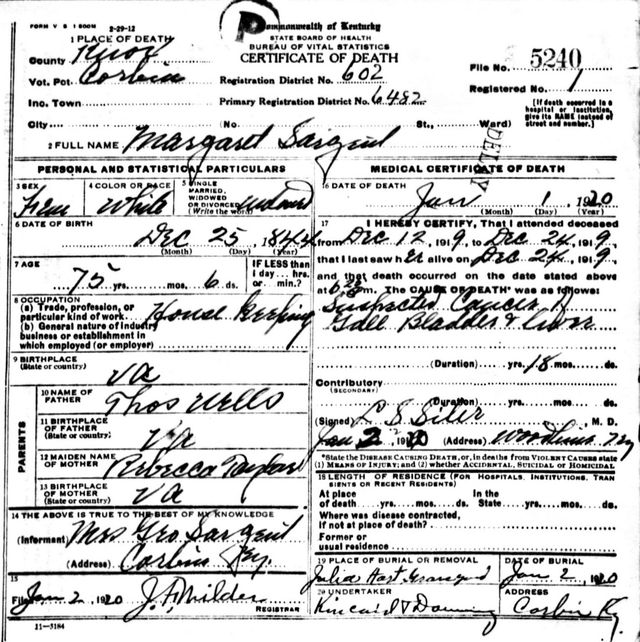 FORM V S 1 500M 2-29-12
Commonwealth of Kentucky
STATE BOARD OF HEALTH
BUREAU OF VITAL STATISTICS
CERTIFICATE OF DEATH
1 PLACE OF DEATH
County Knox
Vot. Pct Corbin
Registration District No. 602
File No. 5240
Registered No. 1
Inc. Town
Primary Registration District No. 6482
[If death occurred in a hospital or institution, give its NAME instead of street and number.]
City (No. St., Ward)
DELAY
2 FULL NAME Margaret Sargent
PERSONAL AND STATISTICAL PARTICULARS
3 SEX Fem
4 COLOR OR RACE White
5 SINGLE MARRIED, WIDOWED OR DIVORCED (Write the word) widowed
6 DATE OF BIRTH
Dec 25, 1844
(Month) (Day) (Year)
7 AGE
75 yrs. mos. 6 ds.
IF LESS than 1 day... hrs. or min.?
8 OCCUPATION
(a) Trade, profession, or particular kind of work House Keeping
(b) General nature of industry business or establishment in which employed (or employer)
9 BIRTHPLACE
(State or country) Va
PARENTS
10 NAME OF FATHER Thos Wells
11 BIRTHPLACE OF FATHER (State or country) Va
12 MAIDEN NAME OF MOTHER Rebecca
13 BIRTHPLACE OF MOTHER (State or country) Va
14 THE ABOVE IS TRUE TO THE BEST OF MY KNOWLEDGE
(Informant) Mrs Geo. Sargent
(Address) Corbin Ky.
15
Filed Jan 2, 1920 REGISTRAR
11—3184
MEDICAL CERTIFICATE OF DEATH
16 DATE OF DEATH
Jan 1 1920
(Month) (Day) (Year)
17 I HEREBY CERTIFY, That I attended deceased
from Dec 12, 1919, to Dec 24, 1919
that I last saw her alive on Dec 24, 1919
and that death occurred on the date stated above
at m. The CAUSE OF DEATH* was as follows:
Suspected Cancer of
Gall Bladder & Liver
(Duration) yrs. 18 mos. ds.
Contributory
(SECONDARY)
(Duration) yrs. mos. ds.
(Signed) L S Siler, M. D.
Jan 2 1920 (Address)
*State the DISEASE CAUSING DEATH, or, in deaths from VIOLENT CAUSES state (1) MEANS OF INJURY; and (2) whether ACCIDENTAL, SUICIDAL OR HOMICIDAL
18 LENGTH OF RESIDENCE (FOR HOSPITALS, INSTITUTIONS, TRANSIENTS OR RECENT RESIDENTS)
At place of death yrs. mos. ds.
In the State yrs. mos. ds.
Where was disease contracted, if not at place of death?
Former or usual residence
19 PLACE OF BURIAL OR REMOVAL
DATE OF BURIAL
Jan 2, 1920
20 UNDERTAKER
ADDRESS
Corbin Ky.